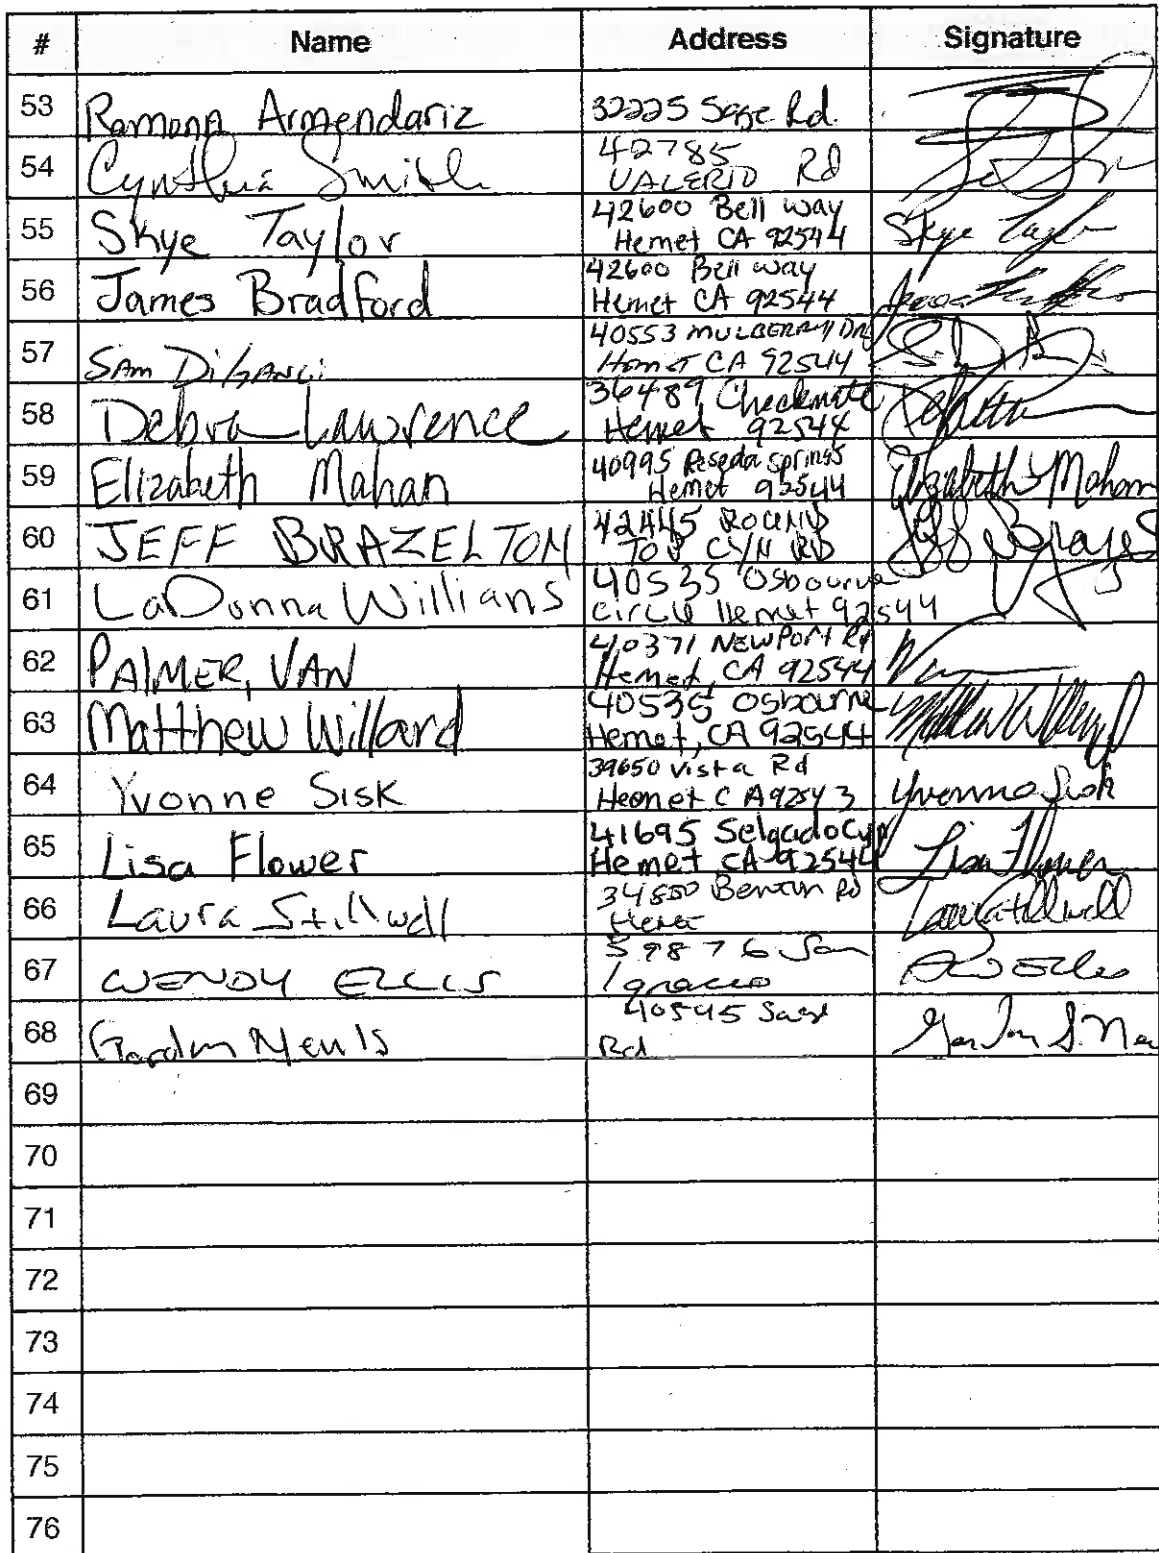 # Name Address Signature
53 Ramona Armendariz 32225 Sage Rd.
54 Cynthia Smith 42785
VALERIO Rd
55 Skye Taylor 42600 Bell Way
Hemet CA 92544 Skye Taylor
56 James Bradford 42600 Bell Way
Hemet CA 92544
57 SAM 40553 MULBERRY DR
Hemet CA 92544
58 Debra Lawrence 36489 Checkmate
Hemet 92544
59 Elizabeth Mahan 40995 Reseda Springs
Hemet 92544 Elizabeth Mahan
60 JEFF BRAZELTON 42445 ROUND
TOP CYN RD Jeff
61 LaDonna Willians 40535 Osbourne
Circle Hemet 92544
62 PALMER, VAN 40371 NEWPORT Rd
Hemet, CA 92544
63 Matthew Willard 40535 Osbourne
Hemet, CA 92544
64 Yvonne Sisk 39650 Vista Rd
Hemet CA 92543 Yvonne Sisk
65 Lisa Flower 41695 Selgado Cyn
Hemet CA 92544 Lisa Flower
66 Laura Stillwell 34550 Benton Rd
Hemet Laura Stillwell
67 WENDY ELLIS 39876 San
Ignacio
68 Gordon 40545 Sage
Rd
69
70
71
72
73
74
75
76